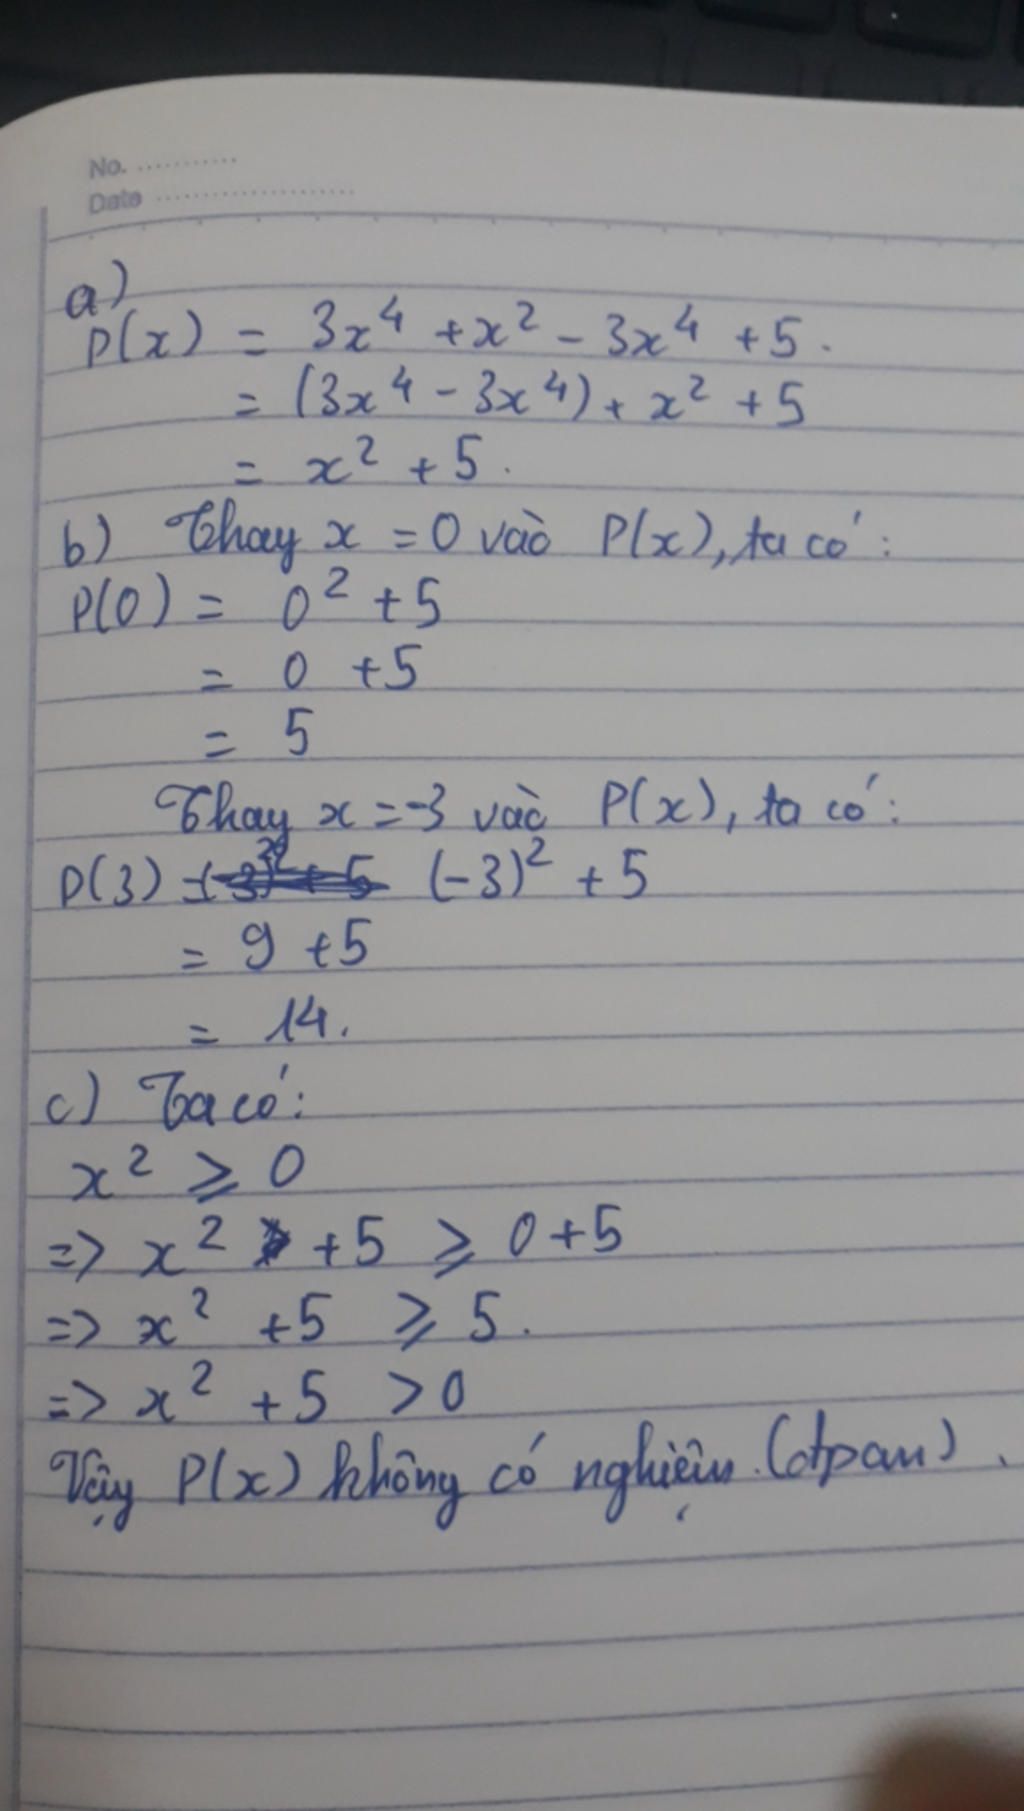 No. ...........
Date ......................
a)
P(x) = 3x⁴ + x² - 3x⁴ + 5.
= (3x⁴ - 3x⁴) + x² + 5
= x² + 5.
b) Thay x = 0 vào P(x), ta có:
P(0) = 0² + 5
= 0 + 5
= 5
Thay x = -3 vào P(x), ta có:
P(3) = (-3)² + 5
= 9 + 5
= 14.
c) Ta có:
x² ⩾ 0
=> x² + 5 ⩾ 0 + 5
=> x² + 5 ⩾ 5.
=> x² + 5 > 0
Vậy P(x) không có nghiệm. (đpcm).